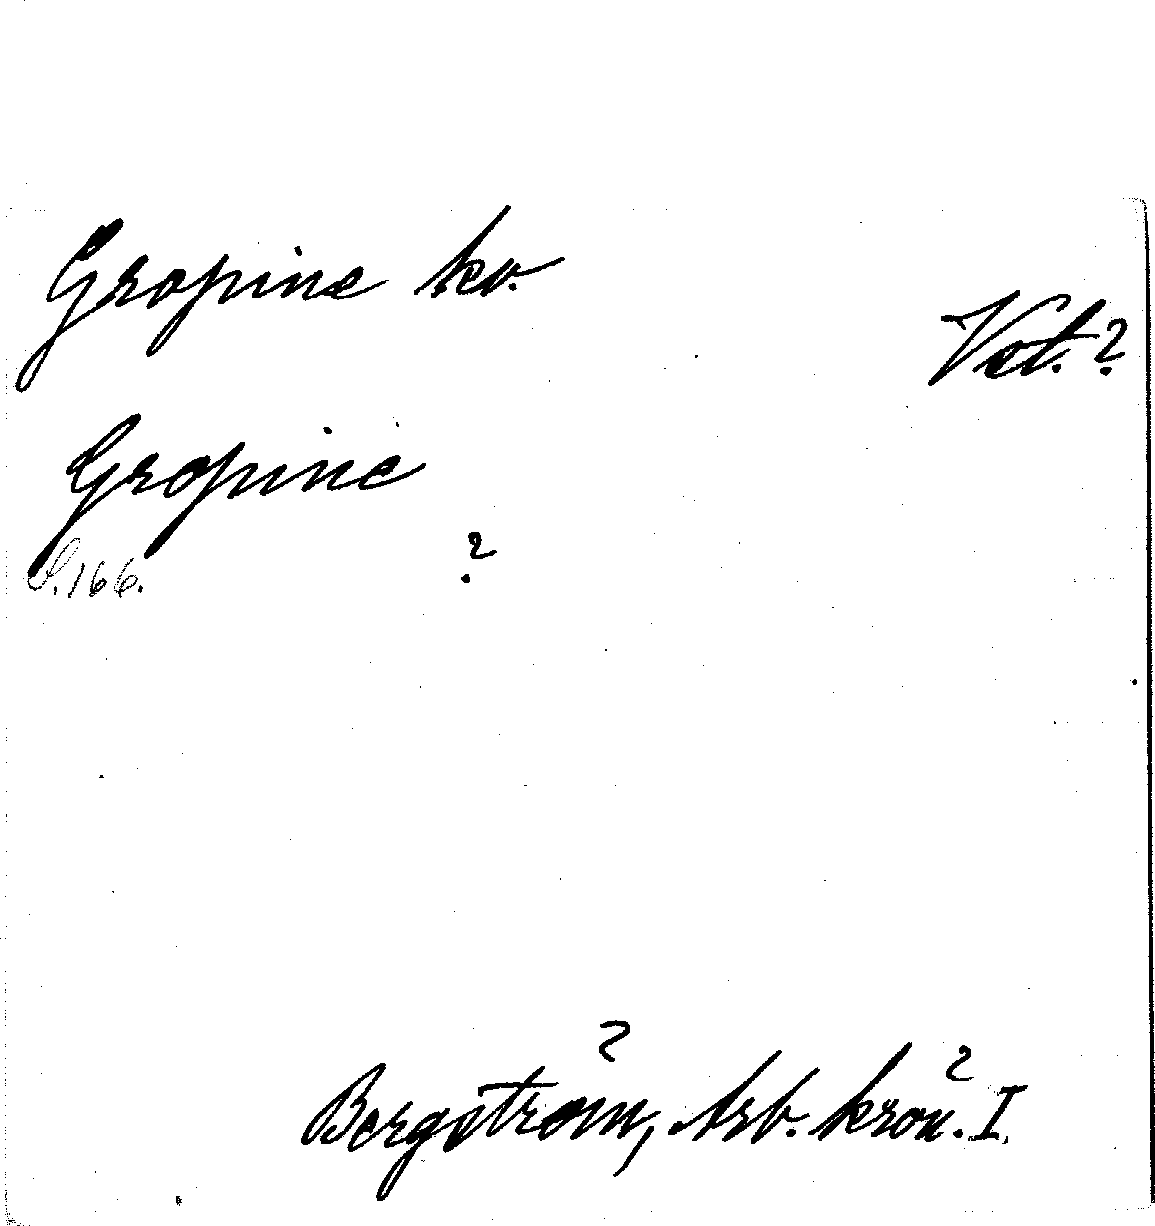 Gropine kv.
Vet.?
Gropine
?
S.166.
Bergström, Arb. krön. I